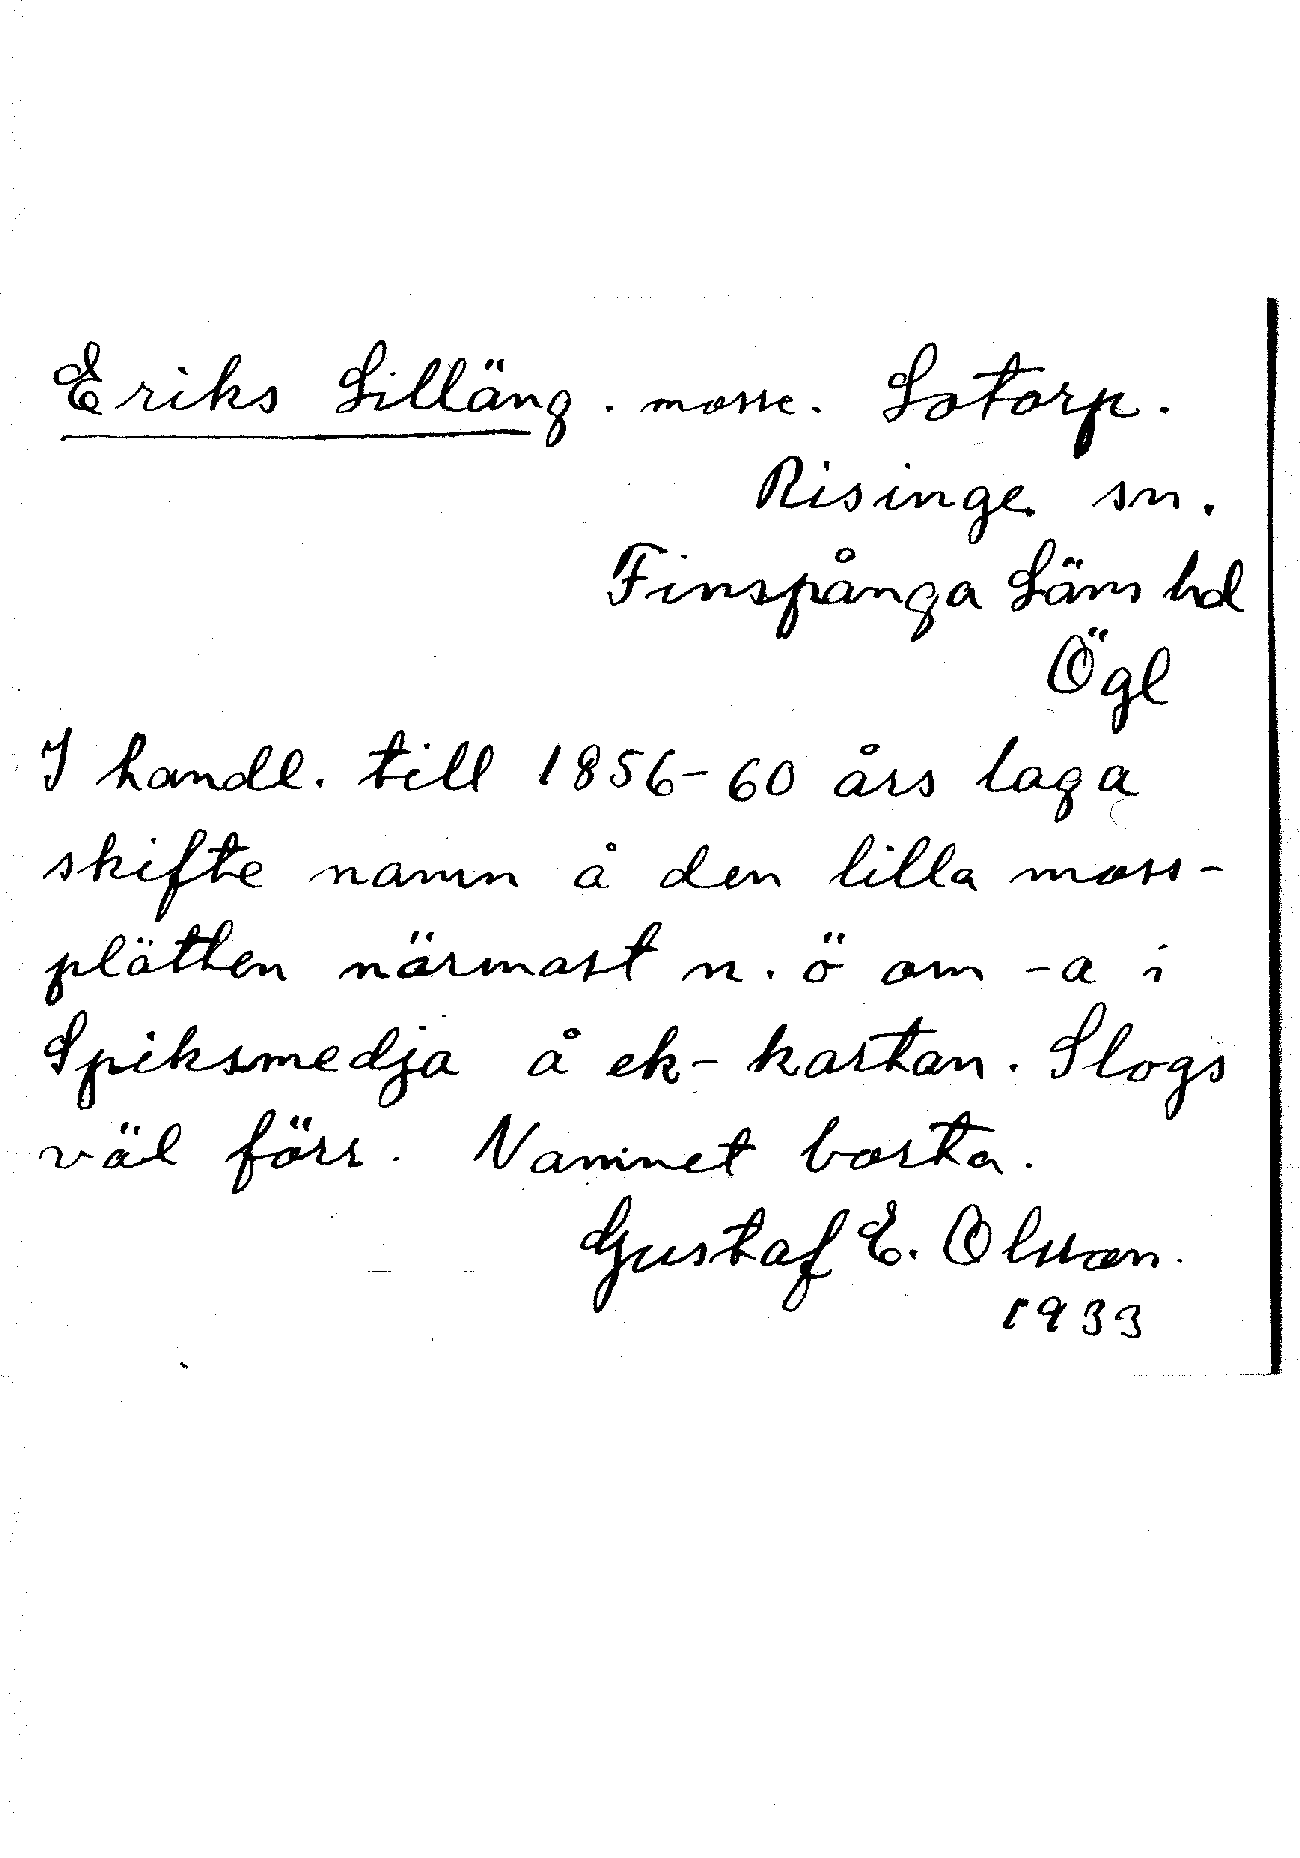 Eriks Lilläng. mosse. Lotorp.
Risinge sn.
Finspånga Läns hd
Ögl
I handl. till 1856-60 års laga
skifte namn å den lilla moss-
plätten närmast n.ö om -a i
Spiksmedja å ek-kartan. Slogs
väl förr. Namnet borta.
Gustaf E. Olsson.
1933